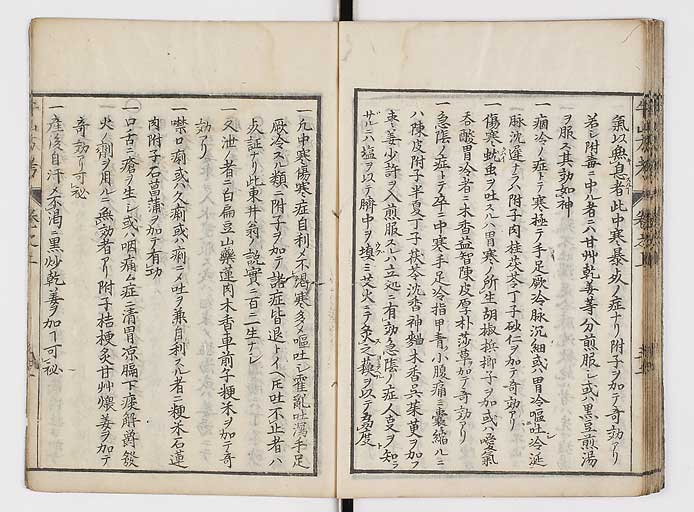 氣以無息者此中寒暴攻ノ症ナリ附子ヲ加テ奇効アリ
若シ附毒ニ中ル者ニハ甘艸乾姜等分煎服シ或ハ黒豆煎湯
ヲ服ス其効如神
一痼冷ノ症トテ寒極テ手足厥冷脉沉細或ハ胃冷嘔吐冷涎
脉沉遅トテハ附子肉桂茯苓丁子砂仁ヲ加テ奇効アリ
一傷寒蚘虫ヲ吐スルハ胃寒ノ所生胡椒梹榔子ヲ加或ハ噯氣
呑酸胃冷者ニ木香益智陳皮厚朴莎草加テ奇効アリ
一急陰ノ症トテ卒ニ中寒手足冷指甲青小腹痛ミ囊縮ルニ
ハ陳皮附子半夏丁子茯苓沈香神麯木香呉茱萸ヲ加フ
棗姜少許ヲ入煎服スレハ立処ニ有効急陰ノ症人夏ヲ知ラ
サルニハ塩ヲ以テ臍中ヲ填ミ艾火ニテ灸之
一凡中寒傷寒症自利メ不渇寒多メ嘔吐シ霍亂吐瀉手足
厥冷スル類ニ附子ヲ加テ諸症皆退トイヘ𪜈吐不止者ハ
此証ナリ此東井翁ノ説實ニ百ニ一生ナシ
一又泄ノ者ニ白扁豆山藥蓮肉木香車前子粳米ヲ加テ奇
効アリ
一噤口痢或ハ久痢或ハ痢ニメ吐ヲ兼自利スル者ニ粳米石蓮
肉附子石菖蒲ヲ加テ有功
一口舌ニ瘡ヲ生シ或ハ咽痛ム症ニ清胃凉膈下痰解欝發
火ノ劑ヲ用ルニ無効者アリ附子桔梗炙甘艸煨姜ヲ加テ
奇効アリ可秘
一産後自汗メ不渇ニ黒炒乾姜ヲ加フ可秘